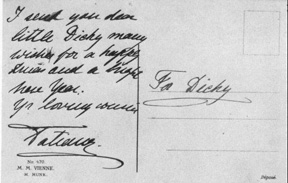 I send you dear
little Dicky many
wishes for a happy
Xmas and a bright
New Year.
Yr loving cousin
Tatiana.
For Dicky
M. M. VIENNE.
M. MUNK.
Déposé